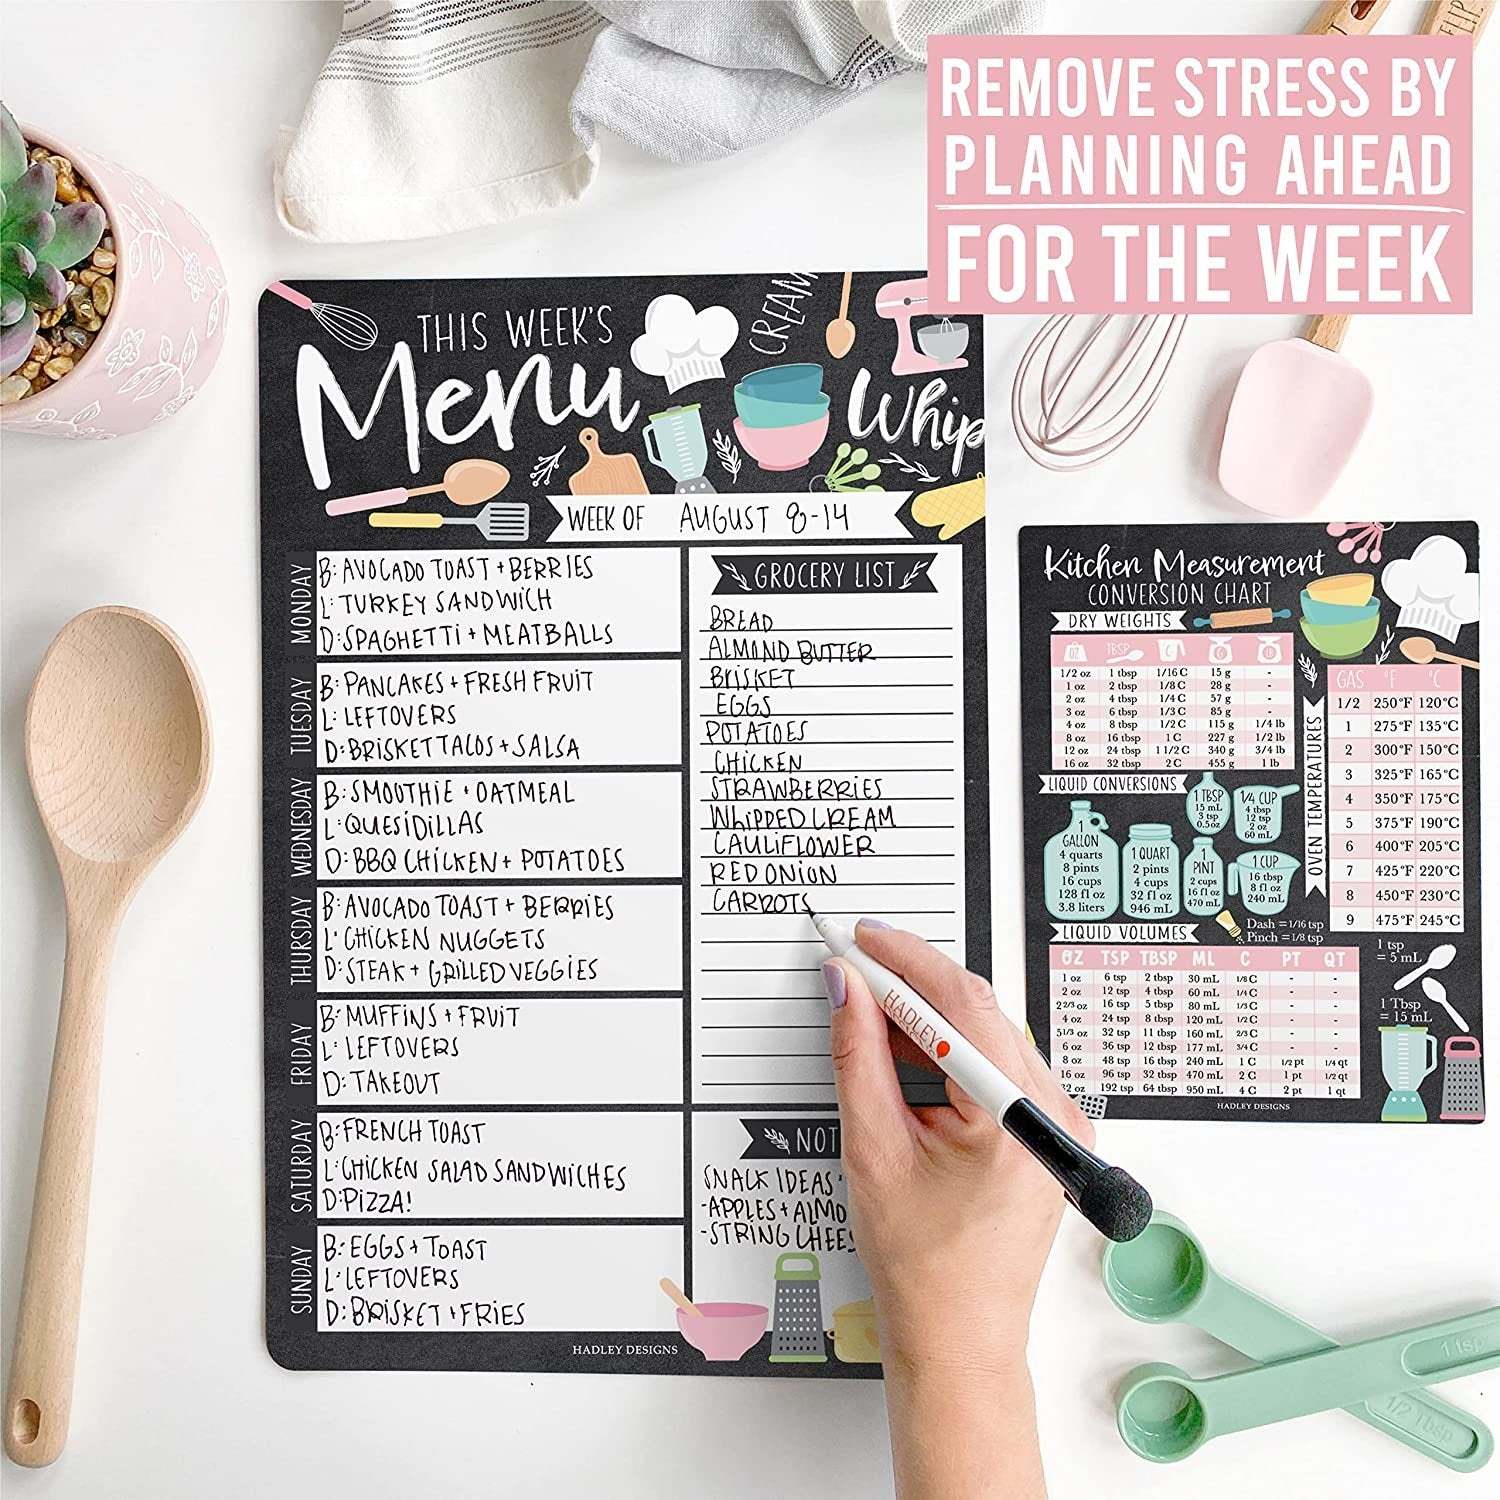 REMOVE STRESS BY
PLANNING AHEAD
FOR THE WEEK
FLIP.
THIS WEEK'S
Menu
CREAM
Whip
WEEK OF AUGUST 8-14
MONDAY
B: AVOCADO TOAST + BERRIES
L: TURKEY SANDWICH
D: SPAGHETTI + MEATBALLS
TUESDAY
B: PANCAKES + FRESH FRUIT
L: LEFTOVERS
D: BRISKET TACOS + SALSA
WEDNESDAY
B: SMOOTHIE + OATMEAL
L: QUESIDILLAS
D: BBQ CHICKEN + POTATOES
THURSDAY
B: AVOCADO TOAST + BERRIES
L: CHICKEN NUGGETS
D: STEAK + GRILLED VEGGIES
FRIDAY
B: MUFFINS + FRUIT
L: LEFTOVERS
D: TAKEOUT
SATURDAY
B: FRENCH TOAST
L: CHICKEN SALAD SANDWICHES
D: PIZZA!
SUNDAY
B: EGGS + TOAST
L: LEFTOVERS
D: BRISKET + FRIES
GROCERY LIST
BREAD
ALMOND BUTTER
BRISKET
EGGS
POTATOES
CHICKEN
STRAWBERRIES
WHIPPED CREAM
CAULIFLOWER
RED ONION
CARROTS
NOT
SNACK IDEAS
-APPLES + ALMO
-STRING CHEES
HADLEY DESIGNS
HADLEY
Kitchen Measurement
CONVERSION CHART
DRY WEIGHTS
OZ TBSP C G LB
1/2 oz 1 tbsp 1/16 C 15 g -
1 oz 2 tbsp 1/8 C 28 g -
2 oz 4 tbsp 1/4 C 57 g -
3 oz 6 tbsp 1/3 C 85 g -
4 oz 8 tbsp 1/2 C 115 g 1/4 lb
8 oz 16 tbsp 1 C 227 g 1/2 lb
12 oz 24 tbsp 1 1/2 C 340 g 3/4 lb
16 oz 32 tbsp 2 C 455 g 1 lb
OVEN TEMPERATURES
GAS °F °C
1/2 250°F 120°C
1 275°F 135°C
2 300°F 150°C
3 325°F 165°C
4 350°F 175°C
5 375°F 190°C
6 400°F 205°C
7 425°F 220°C
8 450°F 230°C
9 475°F 245°C
LIQUID CONVERSIONS
1 GALLON
4 quarts
8 pints
16 cups
128 fl oz
3.8 liters
1 QUART
2 pints
4 cups
32 fl oz
946 mL
1 TBSP
15 mL
3 tsp
0.5 oz
1 PINT
2 cups
16 fl oz
470 mL
1/4 CUP
4 tbsp
12 tsp
2 oz
60 mL
1 CUP
16 tbsp
8 fl oz
240 mL
Dash = 1/16 tsp
Pinch = 1/8 tsp
1 tsp
= 5 mL
1 Tbsp
= 15 mL
LIQUID VOLUMES
OZ TSP TBSP ML C PT QT
1 oz 6 tsp 2 tbsp 30 mL 1/8 C - -
2 oz 12 tsp 4 tbsp 60 mL 1/4 C - -
2 2/3 oz 16 tsp 5 tbsp 80 mL 1/3 C - -
4 oz 24 tsp 8 tbsp 120 mL 1/2 C - -
5 1/3 oz 32 tsp 11 tbsp 160 mL 2/3 C - -
6 oz 36 tsp 12 tbsp 177 mL 3/4 C - -
8 oz 48 tsp 16 tbsp 240 mL 1 C 1/2 pt 1/4 qt
16 oz 96 tsp 32 tbsp 470 mL 2 C 1 pt 1/2 qt
32 oz 192 tsp 64 tbsp 950 mL 4 C 2 pt 1 qt
HADLEY DESIGNS
1 tsp
1/2 Tbsp